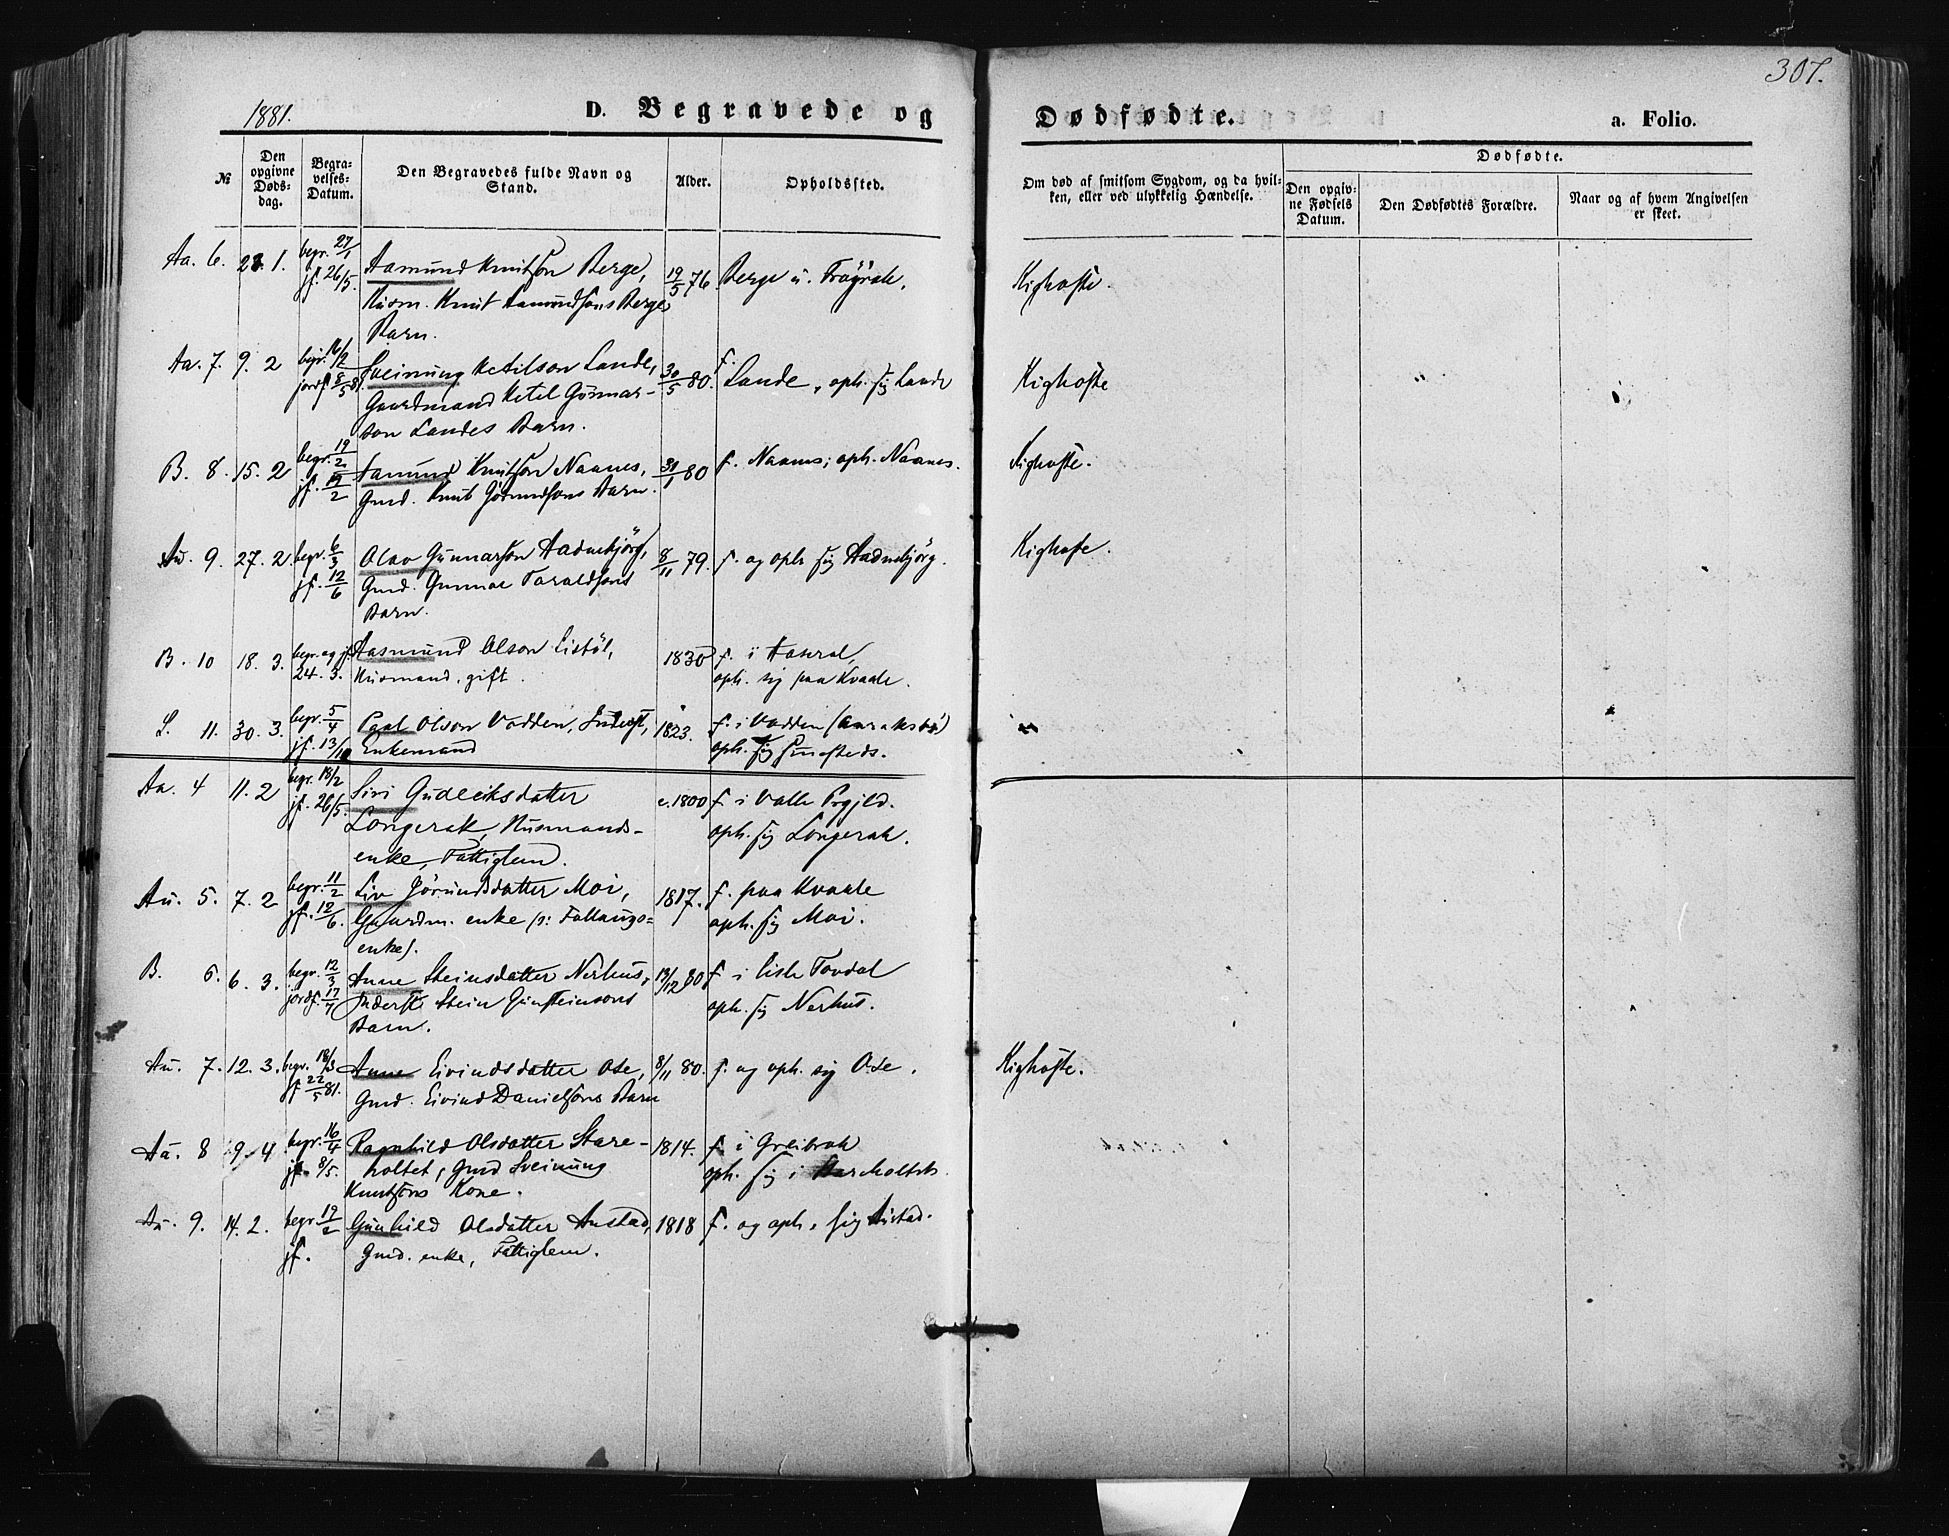 307.
1881.
D. Begravede og Dødfødte.
a. Folio.
№
Den opgivne Døds-dag.
Begra-velses-Datum.
Den Begravedes fulde Navn og Stand.
Alder.
Opholdssted.
Om død af smitsom Sygdom, og da hvil-
ken, eller ved ulykkelig Hændelse.
Dødfødte.
Den opgiv-ne Fødsels Datum.
Den Dødfødtes Forældre.
Naar og af hvem Angivelsen er skeet.
Aa. 6. 1. begr. 27/1 Aamund Knutson Berge, 19/5 76. Berge Kighoste.
jf. 26/5. Husm. Knut Aamundsons Berge
Barn.
Aa. 7. 9. 2 begr. 16/2 Sveinung Ketilson Lande, 30/5 80. f. Lande, oph. sig Lande Kighoste
jordf. Gaardmand Ketil Gunnar-
son Landes Barn.
B. 8. 15. 2 begr. 19/2 Aamund Knutson Naanes, 80 f. Naanes; oph. Naanes. Kighoste.
jf. 19/2 Gmd. Knut Barn.
Au. 9. 27. 2 begr. 6/3 Olav Gunnarson 8/11 79. f. og oph. sig Kighoste.
jf. 12/6 Gmd. Gunnar Taraldsons
Barn.
B. 10 18. 3. begr. og jf. Aasmund Olson Listöl, 1830 f. i
24. 3. Husmand, gift. oph. sig paa Kvaale.
L. 11. 30. 3. begr. 5/4 Paal Olson Vadden, Inderst, 1823. f. i Vadden
jf. 13/11 Enkemand oph. sig
Aa. 4 11. 2 begr. 18/2 Siri Gudleiksdatter c. 1800 f. i Valle Prgjld.
jf. 26/5. Longerak, Husmands- oph. sig Longerak.
enke, Fattiglem.
Au. 5. 7. 2 begr. 11/2 Liv Jörundsdatter Moi, 1817. f. paa Kvaale
jf. 12/6. Gaardm. enke oph. sig Moi.
enke).
B. 6. 6. 3. begr. 12/3 Anne Steinsdatter Nerhus, 13/12 80 f. i Tovdal
jordf. 17/7 Inderst Stein Gunsteinsons oph. sig Nerhus.
Barn.
Au. 7. 12. 3. begr. 18/3 Anne Eivindsdatter Ose, 8/11 80. f. og oph. sig Ose. Kighoste.
jf 22/5 81. Gmd. Eivind Danielsons Barn
Aa. 8 9. 4 begr. 16/4 Ragnhild Olsdatter Stare- 1814. f. i
jf. 8/5. holtet, Gmd Sveinung oph. sig i
Knutsons Kone.
Au. 9. 14. 2. begr. 19/2 Gunhild Olsdatter Austad, 1818 f. og oph. sig
jf. Gmd. enke, Fattiglem.